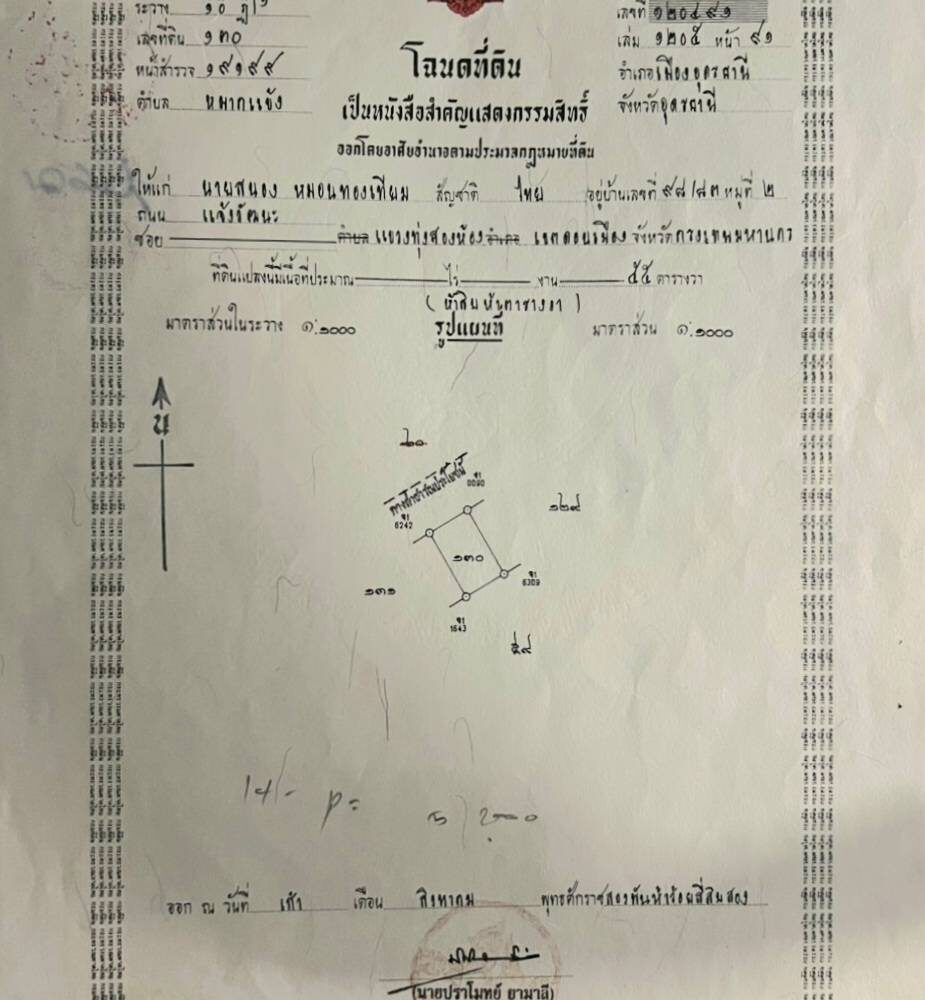 ระวาง ๑๐ ฎ
เลขที่ดิน ๑๓๐
หน้าสำรวจ ๑๙๑๙๙
ตำบล หมากแข้ง
เลขที่ ๑๒๐๔๙๑
เล่ม ๑๒๐๕ หน้า ๙๑
อำเภอเมืองอุดรธานี
จังหวัดอุดรธานี
โฉนดที่ดิน
เป็นหนังสือสำคัญแสดงกรรมสิทธิ์
ออกโดยอาศัยอำนาจตามประมวลกฎหมายที่ดิน
ให้แก่ นายสนอง หมอนทองเทียม สัญชาติ ไทย อยู่บ้านเลขที่ ๙๘/๘๓ หมู่ที่ ๒
ถนน แจ้งวัฒนะ
ซอย ตำบล แขวงทุ่งสองห้อง อำเภอ เขตดอนเมือง จังหวัดกรุงเทพมหานคร
ที่ดินแปลงนี้มีเนื้อที่ประมาณ ไร่ งาน ๕๕ ตารางวา
(ห้าสิบห้าตารางวา)
มาตราส่วนในระวาง ๑:๑๐๐๐ รูปแผนที่ มาตราส่วน ๑:๑๐๐๐
น
๖๐
ทางสาธารณประโยชน์
6242
๑๒๙
๑๓๐
๑๓๑
6309
1643
๕๙
ออก ณ วันที่ เก้า เดือน สิงหาคม พุทธศักราชสองพันห้าร้อยสี่สิบสอง
(นายปราโมทย์ ยามาลี)